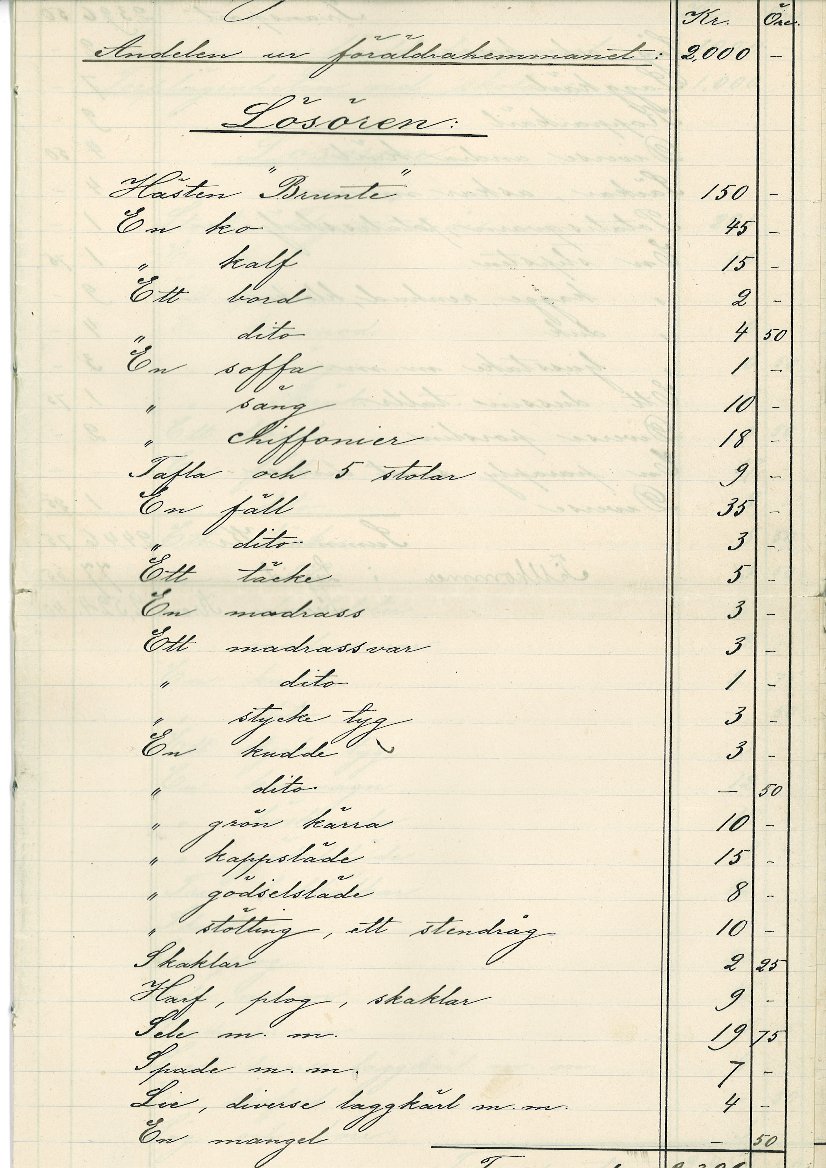 Kr. Öre.
Andelen ur föräldrahemmanet: 2,000 -
Lösören:
Hästen "Brunte" 150 -
En ko 45 -
" kalf 15 -
Ett bord 2 -
" dito 4 50
En soffa 1 -
" säng 10 -
" chiffonier 18 -
Tafla och 5 stolar 9 -
En fäll 35 -
" dito 3 -
Ett täcke 5 -
En madrass 3 -
Ett madrassvar 3 -
" dito 1 -
" stycke tyg 3 -
En kudde 3 -
" dito - 50
" grön kärra 10 -
" kappsläde 15 -
" gödselsläde 8 -
" stötting, ett stendrög 10 -
Skaklar 2 25
Harf, plog, skaklar 9 -
Sele m. m. 19 75
Spade m. m. 7 -
Lie, diverse laggkärl m. m. 4 -
En mangel - 50